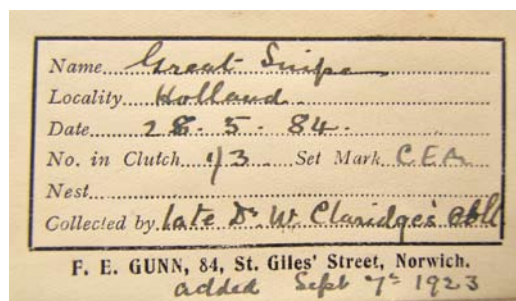 Name Great Snipe
Locality Holland.
Date 28. 5. 84.
No. in Clutch 1/3 Set Mark CEA
Nest
Collected by late Dr. W. Claridge's Coll
F. E. GUNN, 84, St. Giles' Street, Norwich.
added Sept 7th 1923